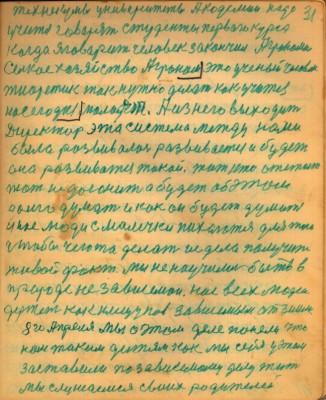 31
техникумы университеты Академии надо
учится говорят студенты первого курса
когда зговарит человек закончил Агрономи
Сельское хозяйство Агроном это ученый человек
тиоретик так нужно делат как учится
насегодня Из него выходит
Директор эта система между нами
была розвивалос развивается и будет
она розвиватся такой. кто
тот не доспит а будет об этом
долго думат и как он будет думат
люди с малечка пихаются для того
чтобы чегота делат и едела получит
живой факт. мы не научилис быть в
природе не зависемом. нас всех люди
держат как как зависемых от земли
8го Апреля мы о этом деле поняли что
нам таким детям как мы себя у этом
заставили по зависемому думат
мы слушаемся своих родителей